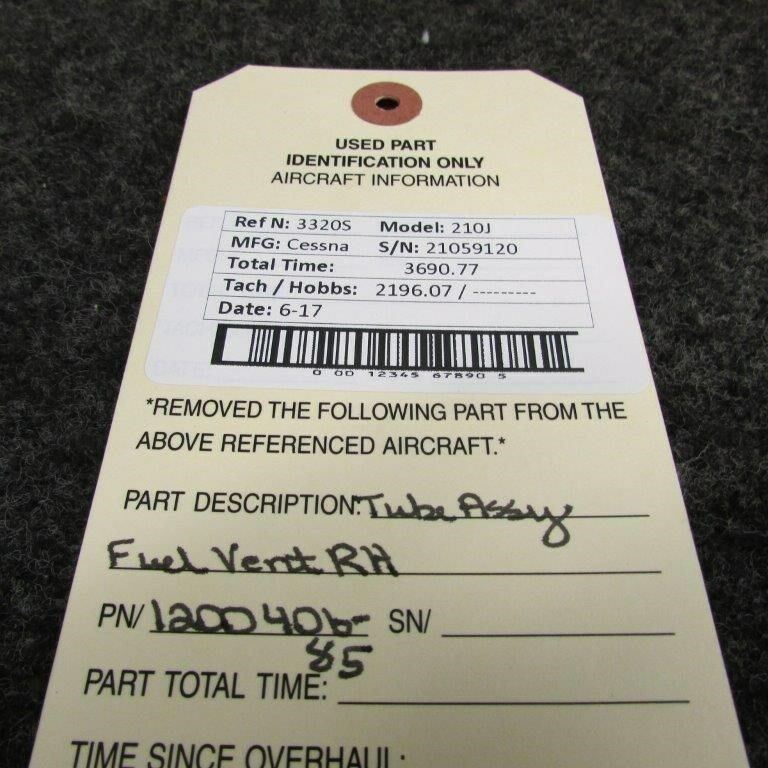 USED PART
IDENTIFICATION ONLY
AIRCRAFT INFORMATION
Ref N: 3320S Model: 210J
MFG: Cessna S/N: 21059120
Total Time: 3690.77
Tach / Hobbs: 2196.07 / ---------
Date: 6-17
0 00 12345 67890 5
*REMOVED THE FOLLOWING PART FROM THE
ABOVE REFERENCED AIRCRAFT.*
PART DESCRIPTION: Tube Assy
Fuel Vent RH
PN/ 1200406- SN/
85
PART TOTAL TIME:
TIME SINCE OVERHAUL: